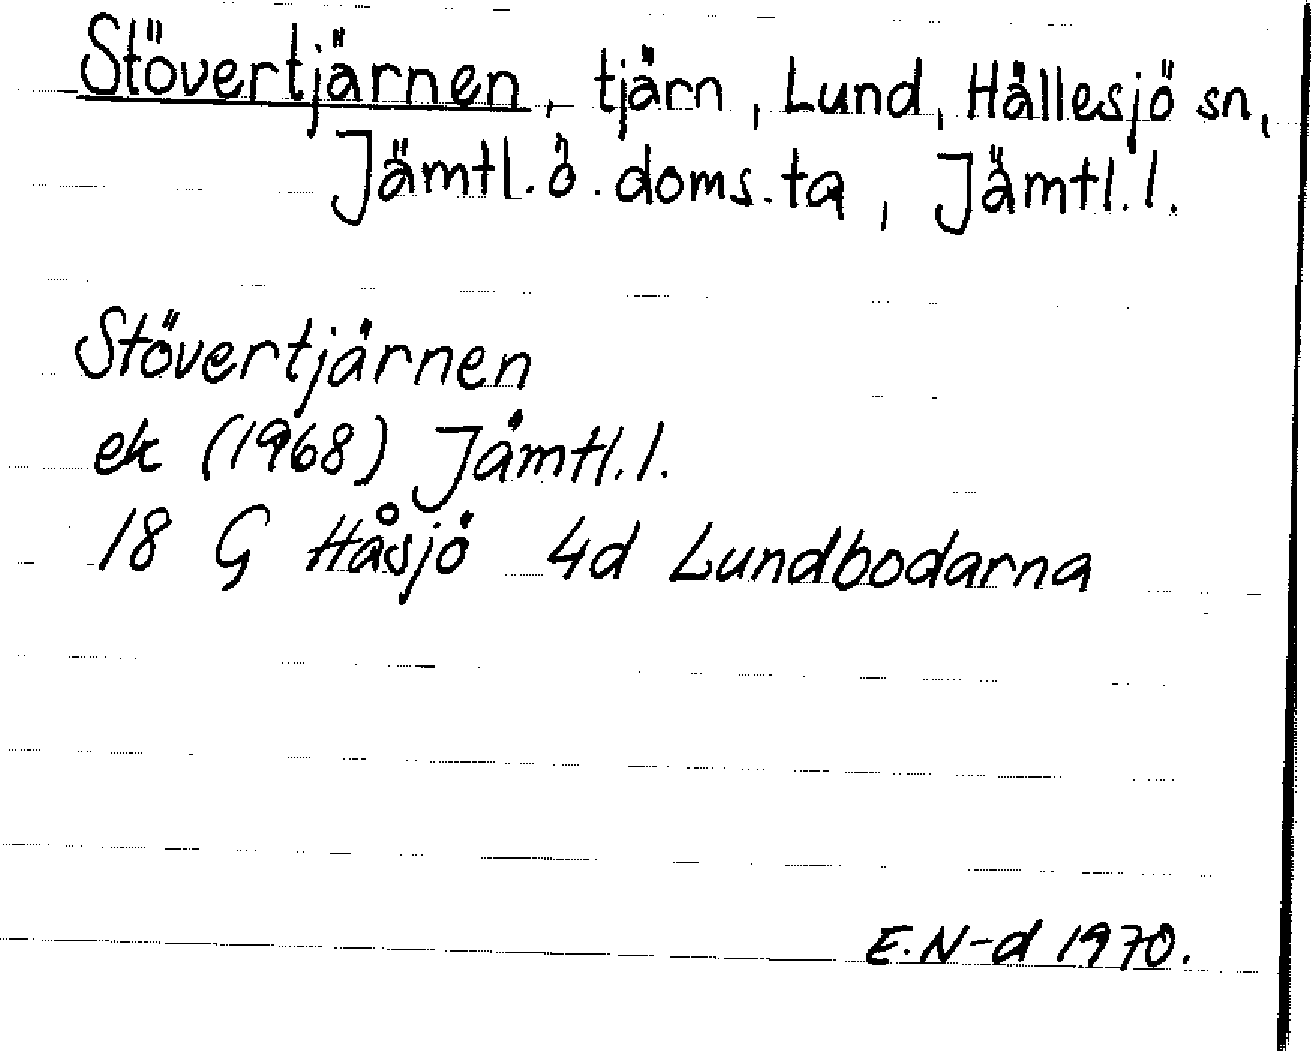 Stövertjärnen, tjärn, Lund, Hällesjö sn,
Jämtl. ö. doms.ta, Jämtl. l.
Stövertjärnen
ek (1968) Jämtl. l.
18 G Håsjö 4d Lundbodarna
E. N-d 1970.